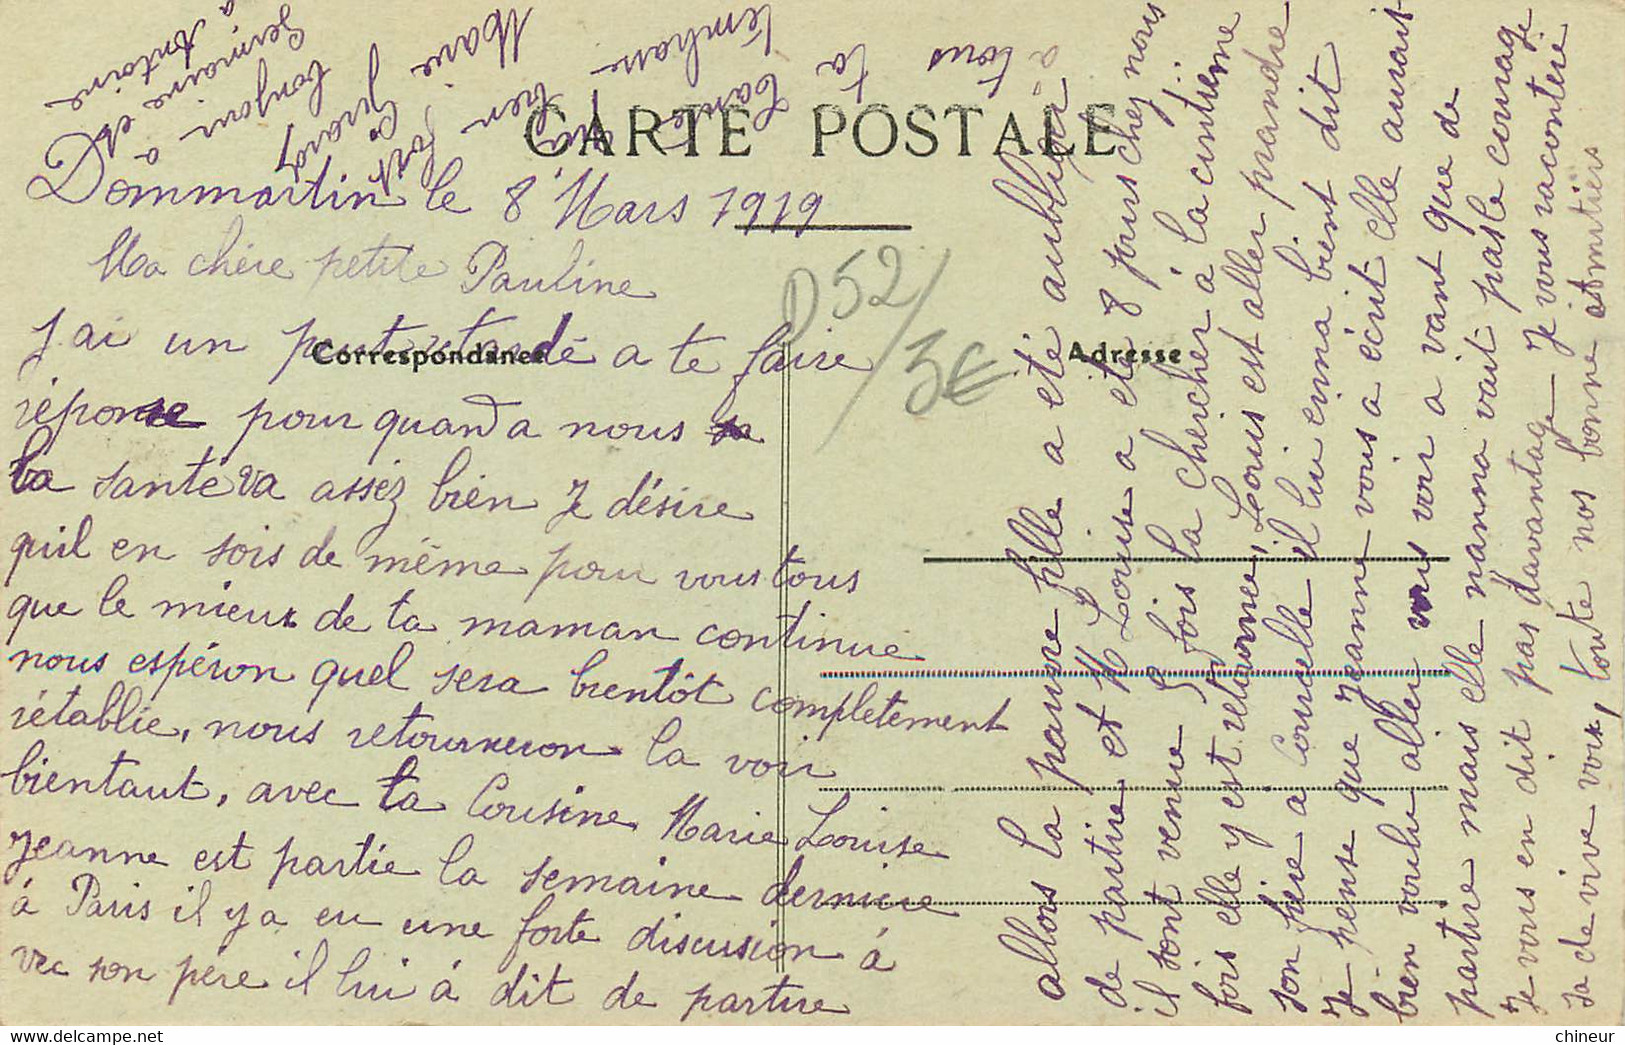 CARTE POSTALE
Correspondance
Adresse
D52/3€
Dommartin le 8 Mars 1919
Ma chère petite Pauline
J'ai un peut retardé a te faire
réponse pour quand a nous
la santé va assez bien Je désire
quil en sois de même pour vous tous
que le mieux de ta maman continue
nous espéron quel sera bientôt completement
rétablie, nous retourneron la voir
bientaut, avec ta Cousine Marie Louise
Jeanne est partie la semaine derniere
á Paris il y a eu une forte discusion á
vec son père il lui á dit de partire
allors la pauvre fille a eté aublijér
de partire et M Louise a eté 8 jours chez nous
il sont venue 5 fois la chercher á la cintième
fois elle y est retournée, Louis est aller prandre
son père a Courcelle il lui enna bient dit
Je pense que Jeanne vous a écrit elle aurait
bien voulue aller vous voir a vant que de
partire mais elle nanna vait pas le courage
Je vous en dit pas davantage Je vous raconterie
sa de vive voix, toute nos bonne amitiers
a tous ta
tante qui
t'embrasse bien fort
Marie Girard
bonjour a
Germaine et
a Antoine
chineur